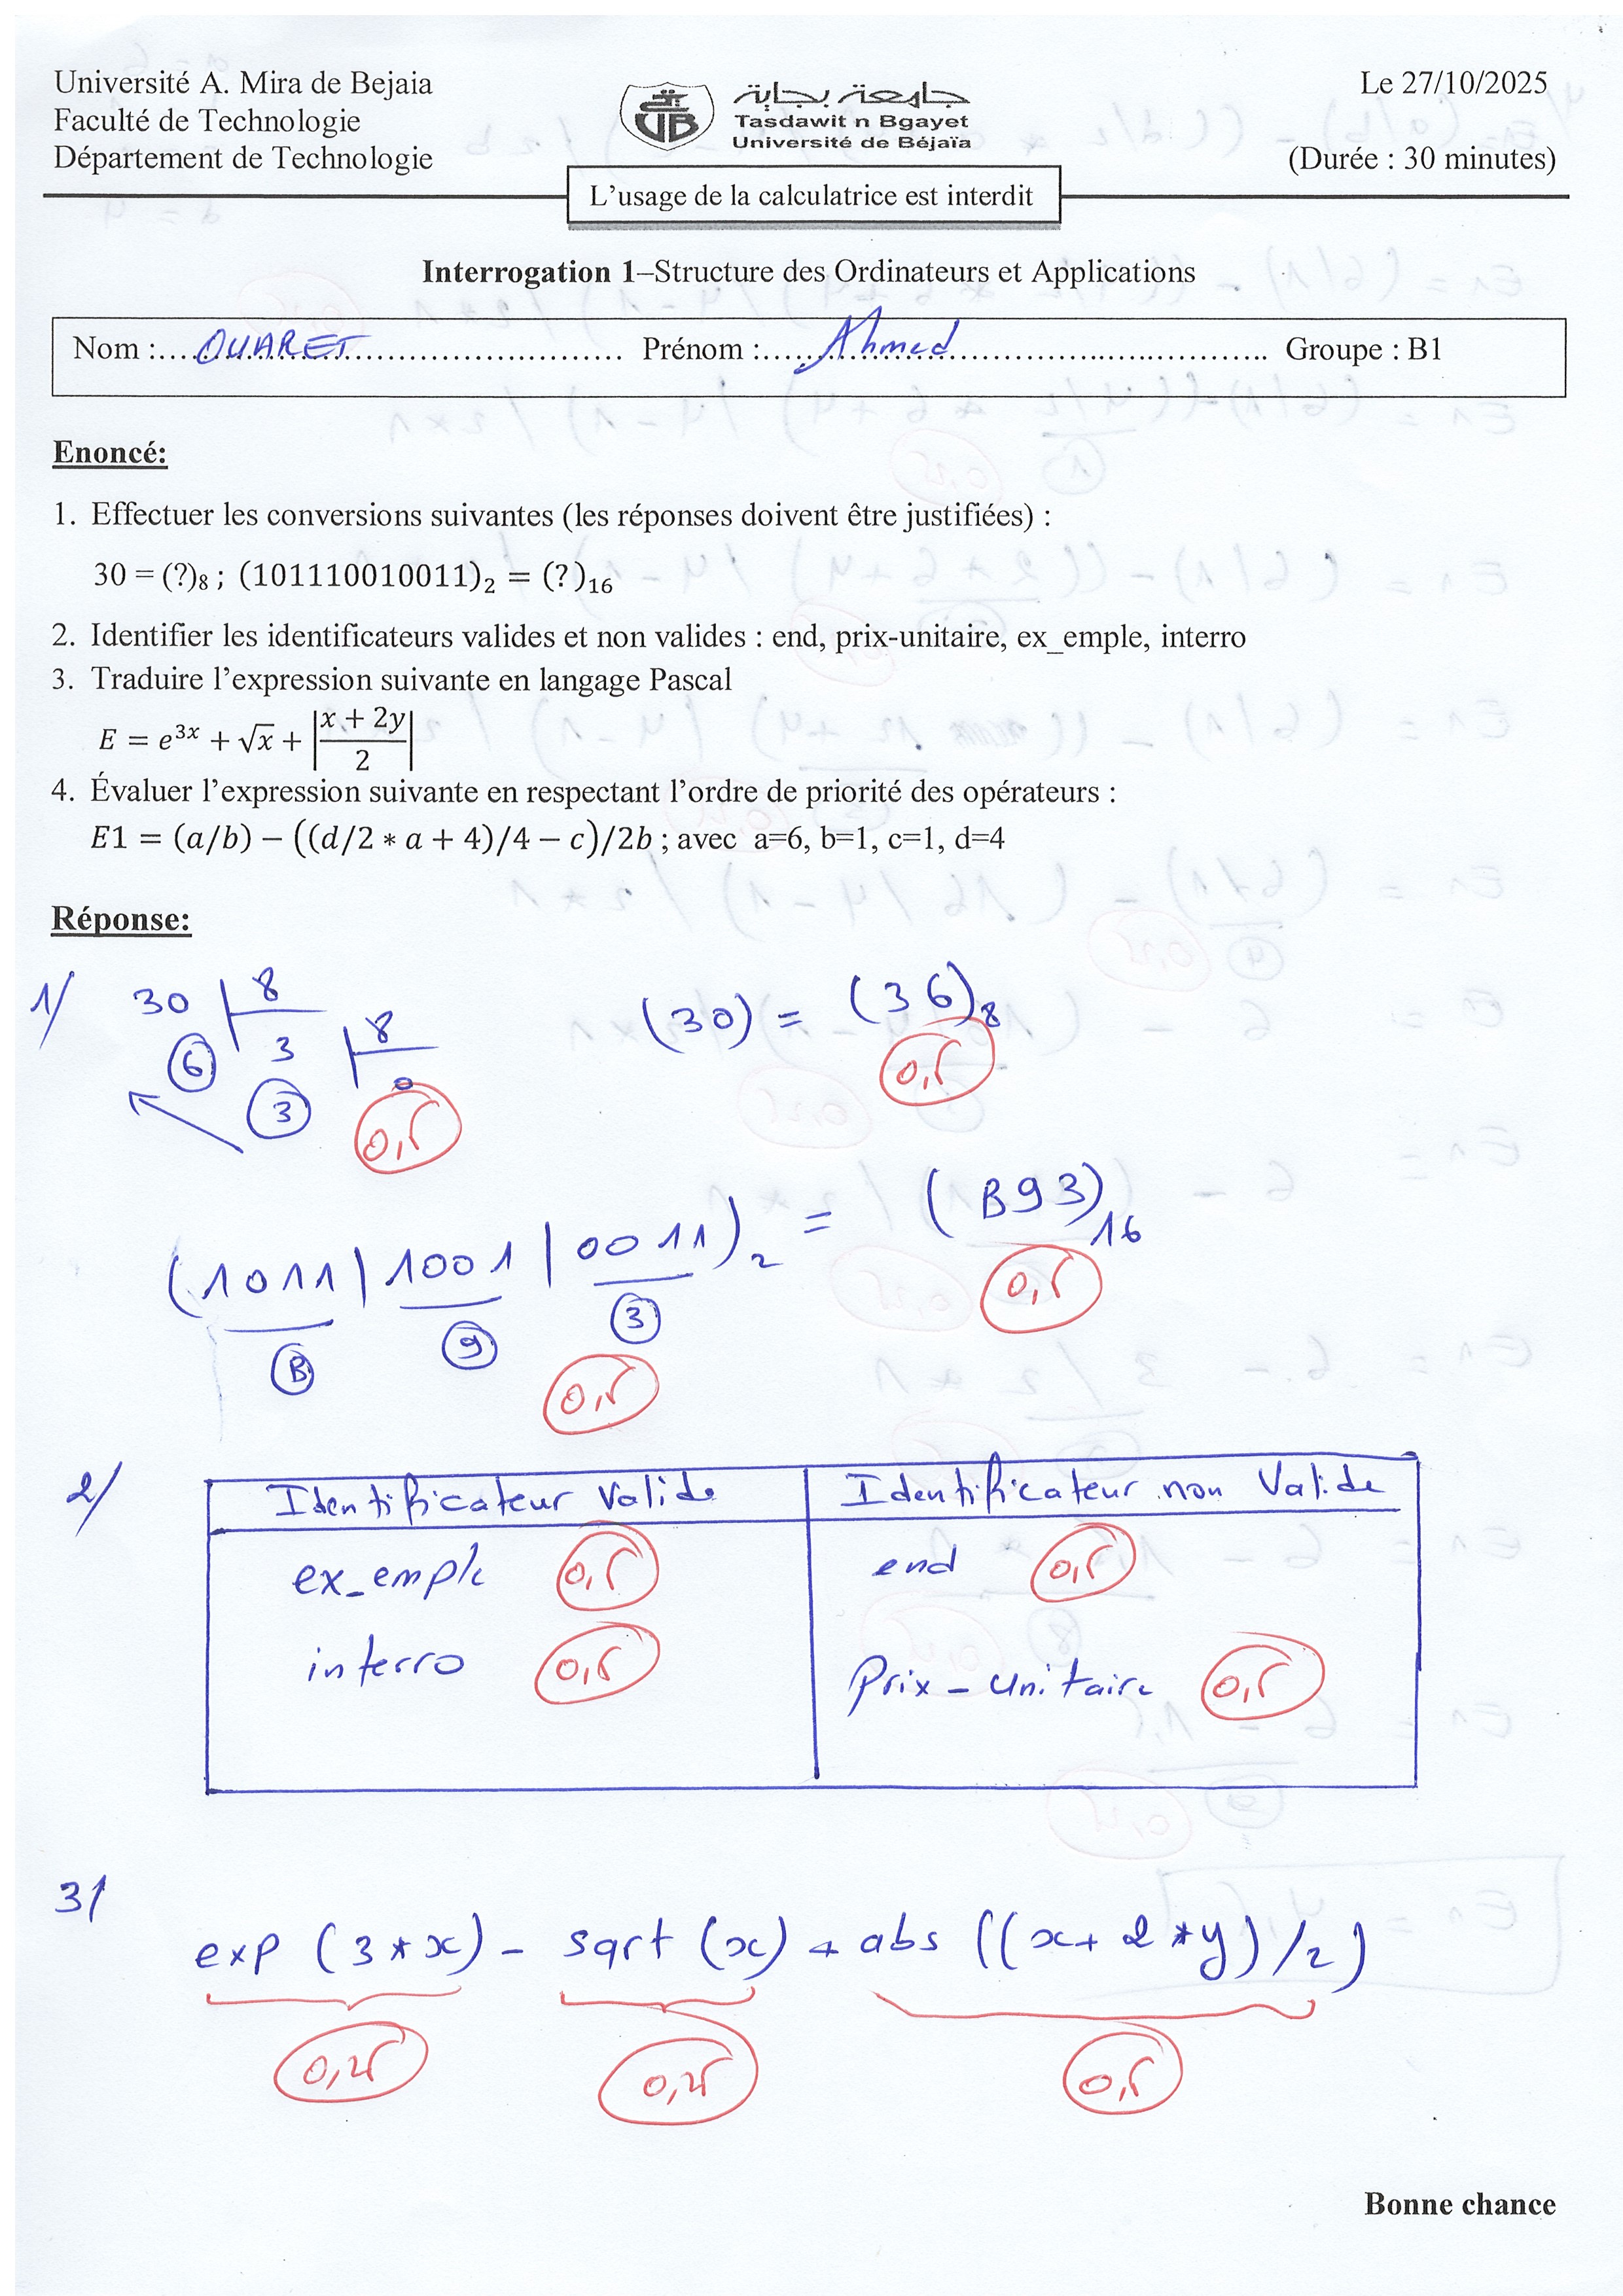 Université A. Mira de Bejaia
Faculté de Technologie
Département de Technologie
جامعة بجاية
Tasdawit n Bgayet
Université de Béjaïa
Le 27/10/2025
(Durée : 30 minutes)
L'usage de la calculatrice est interdit
Interrogation 1–Structure des Ordinateurs et Applications
Nom :.... OUARET .... Prénom :.... Ahmed .... Groupe : B1
Enoncé:
1. Effectuer les conversions suivantes (les réponses doivent être justifiées) :
30 = (?)₈ ; (101110010011)₂ = (?)₁₆
2. Identifier les identificateurs valides et non valides : end, prix-unitaire, ex_emple, interro
3. Traduire l'expression suivante en langage Pascal
E = e^{3x} + √x + |(x + 2y)/2|
4. Évaluer l'expression suivante en respectant l'ordre de priorité des opérateurs :
E1 = (a/b) − ((d/2 * a + 4)/4 − c)/2b ; avec a=6, b=1, c=1, d=4
Réponse:
1/ 30 | 8
6 3 | 8
3 0
0,5
(30) = (36)₈
0,5
(1011 | 1001 | 0011)₂ = (B93)₁₆
B 9 3
0,5
0,5
2/
Identificateur Valide | Identificateur non Valide
ex_emple 0,5 | end 0,5
interro 0,5 | Prix-unitaire 0,5
3/
exp (3*x) - sqrt (x) + abs ((x+2*y)/2)
0,25 0,25 0,5
Bonne chance